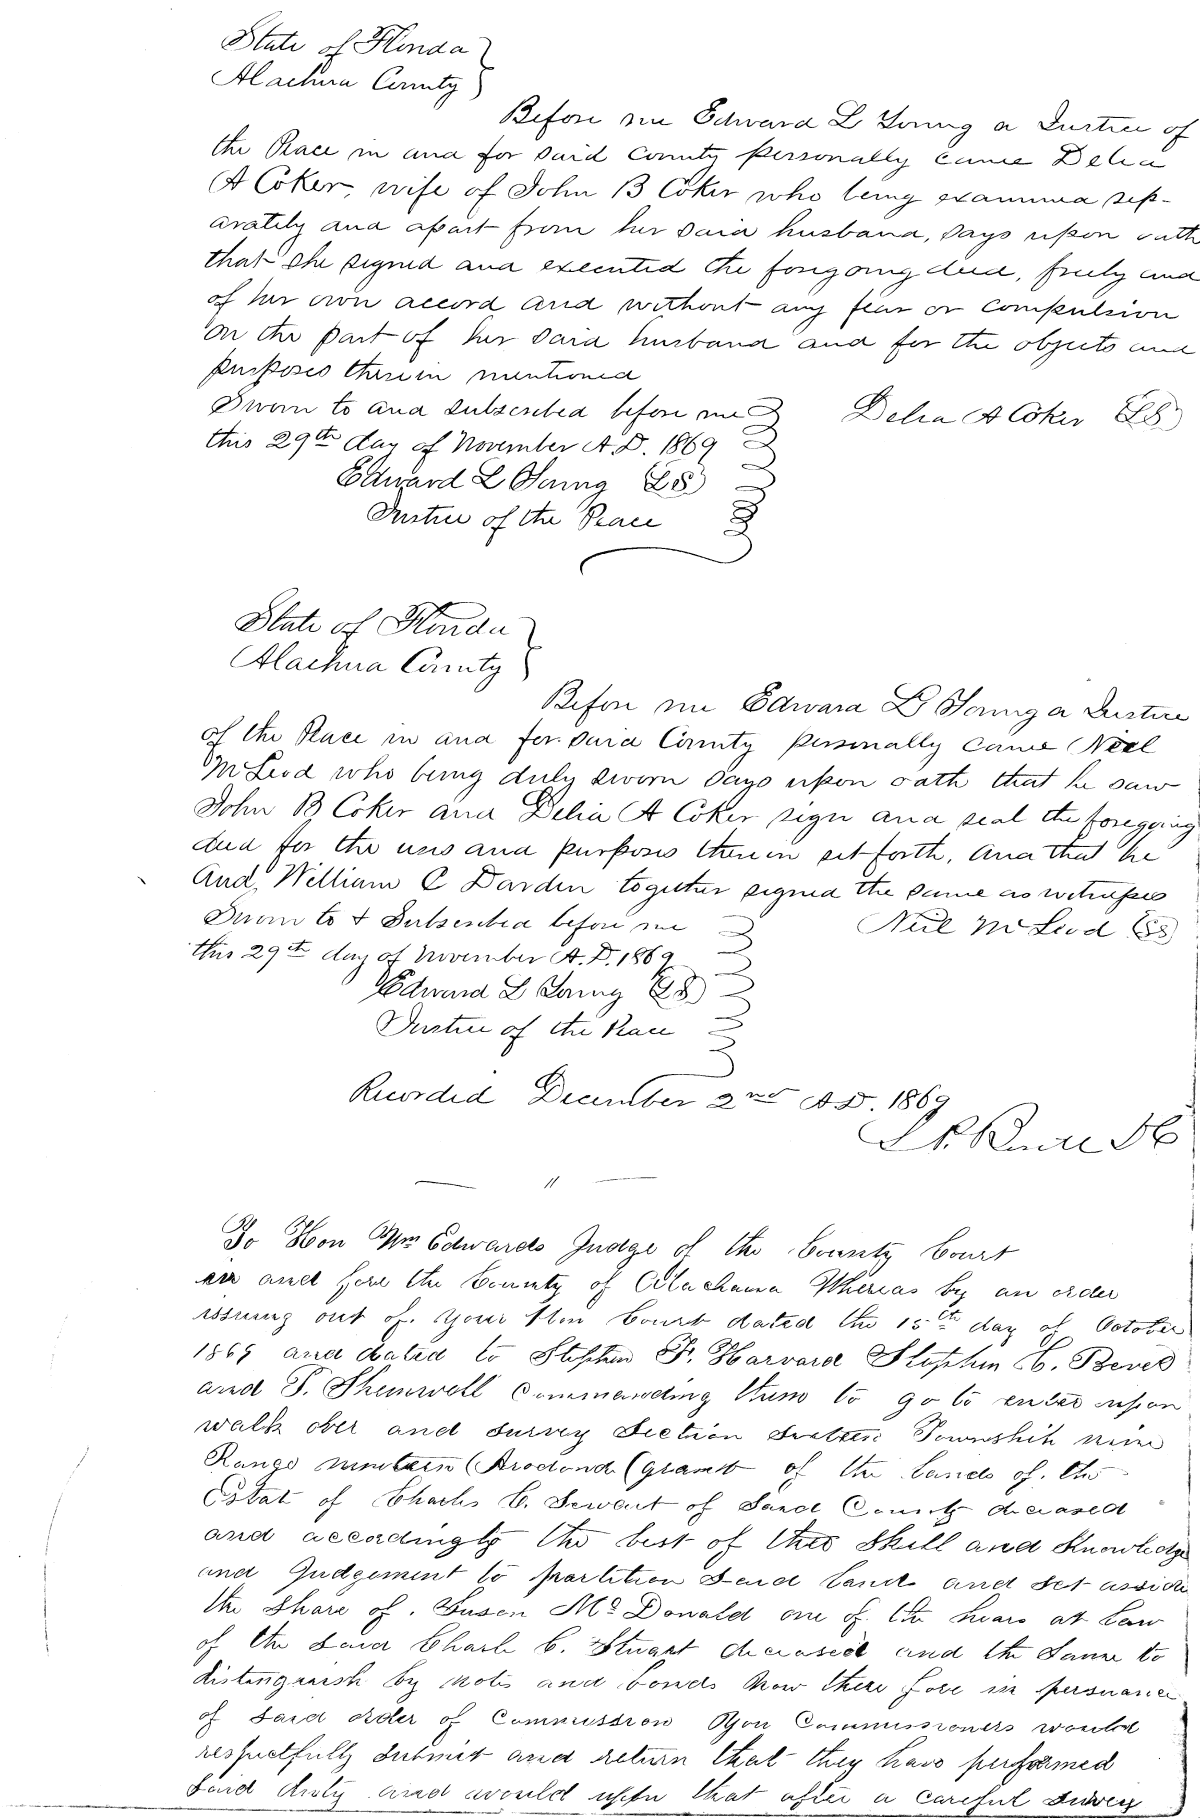 State of Florida
Alachua County
Before me Edward L Young a Justice of
the Peace in and for said County personally came Delia
A Coker, wife of John B Coker who being examined sep-
arately and apart from her said husband, says upon oath
that she signed and executed the foregoing deed, freely and
of her own accord and without any fear or compulsion
on the part of her said husband and for the objects and
purposes therein mentioned
Sworn to and subscribed before me Delia A Coker LS
this 29th day of November A.D. 1869
Edward L Young LS
Justice of the Peace
State of Florida
Alachua County
Before me Edward L Young a Justice
of the Peace in and for said County personally came Neel
McLeod who being duly sworn says upon oath that he saw
John B Coker and Delia A Coker sign and seal the foregoing
deed for the uses and purposes therein set forth, and that he
and William C Darden together signed the same as witnesses
Sworn to + Subscribed before me Neil McLeod LS
this 29th day of November A.D. 1869
Edward L Young LS
Justice of the Peace
Recorded December 2nd A.D. 1869
To Hon Wm Edwards Judge of the County Court
in and fore the County of Alachua Whereas by an order
issuing out of your Hon Court dated the 15th day of October
1869 and dated to Stephen F. Harvard Stephen C. Bevel
and T. Shemwell Commanding them to go to enter upon
walk over and survey Section Township nine
Range nineteen (Arodondo (grant of the Lands of the
Estat of Charls C. Stewart of Said County deceased
and accordingly the best of ther Skill and Knowledge
and Judgement to partition Said Lands and Set asside
the Share of Susan McDonald one of the hears at Law
of the Said Charls C. Stuart deceased and the Same to
distinguish by nots and bonds Now there fore in persuance
of Said order of Commission Your Commissioners would
respectfully submit and return that they have performed
Said duty and would that after a careful survey